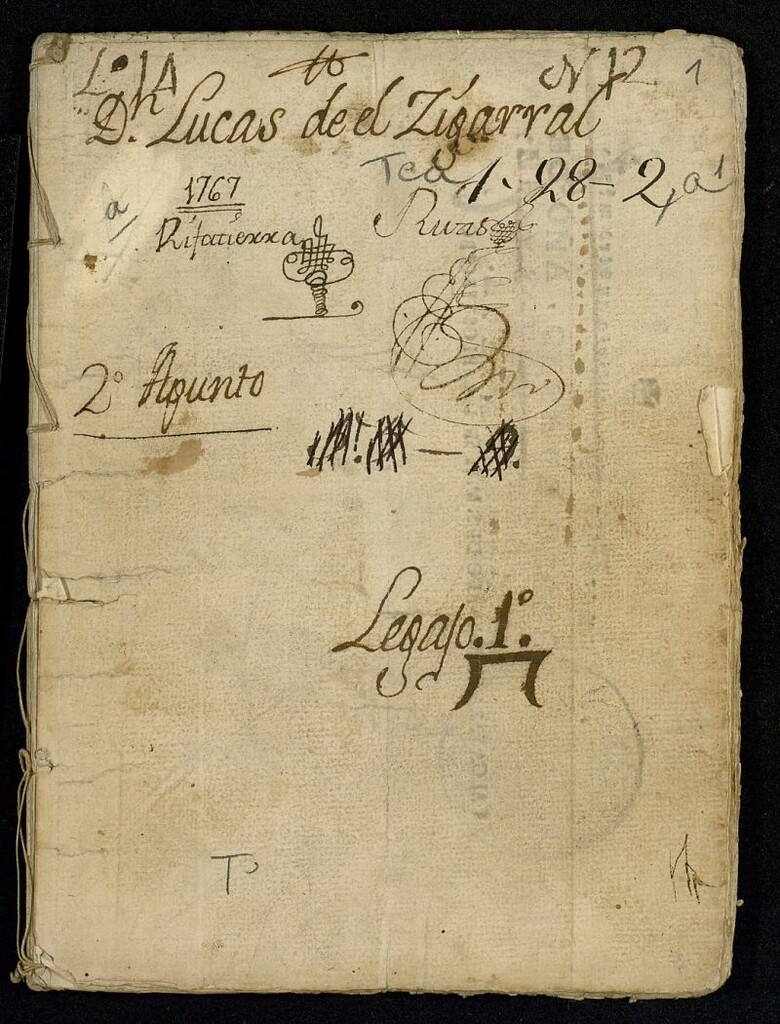 Lº 14 N 12 1
D. Lucas de el Zigarral
Tea 1-28-2, a1
a
1767
Ribatierra
Rivas
2º Apunto
Legajo. 1º.
T